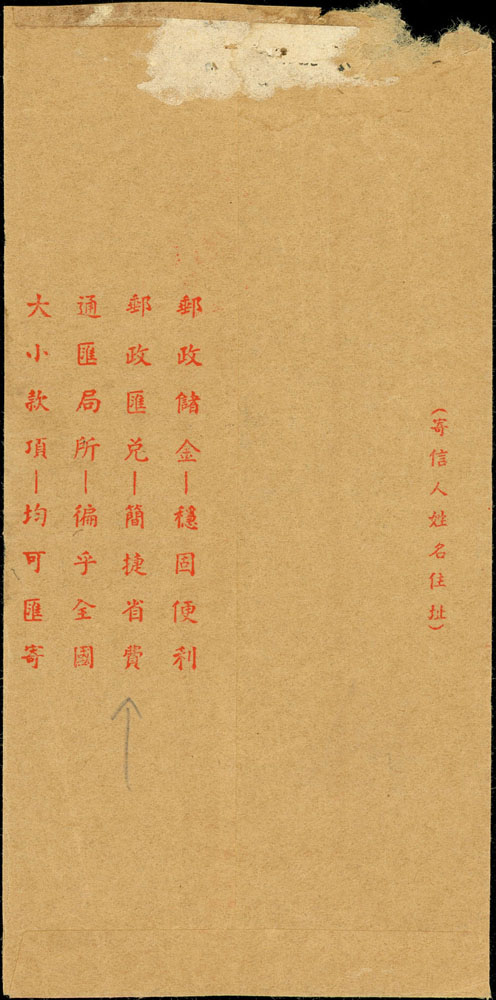 (寄信人姓名住址)
郵政儲金—穩固便利
郵政匯兌—簡捷省費
通匯局所—徧乎全國
大小款項—均可匯寄